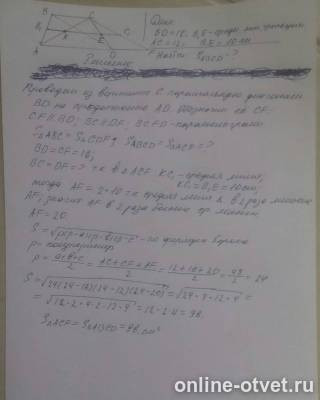 B C
Дано:
BD=16, B,E - средн. лин. трапеции
AC=12; B,E=10 см
A D F
Найти: S ABCD - ?
Решение
Проводим из вершины C параллельно диагонали
BD на продолжение AD. Обозначим её CF.
CF∥BD; BC∥DF; BCFD - параллелограмм
S△ABC = S△CDF; S ABCD = S ACF = ?
BD = CF = 16;
BC = DF = ? в △ACF KC₁ - средняя линия;
KC₁ = B,E = 10 см;
тогда AF = 2·10 средняя линия в 2 раза меньше
AF, значит AF в 2 раза больше ср. линии
AF = 20.
S = √p(p-a)(p-b)(p-c) - по формуле Герона
p - полупериметр
p = a+b+c/2 = AC+CF+AF/2 = 12+16+20/2 = 48/2 = 24
S = √24(24-16)(24-12)(24-20) = √24·8·12·4 =
= √12·2·4·2·12·4 = 12·2·4 = 96.
S△ACF = S ABCD = 96 см²
online-otvet.ru